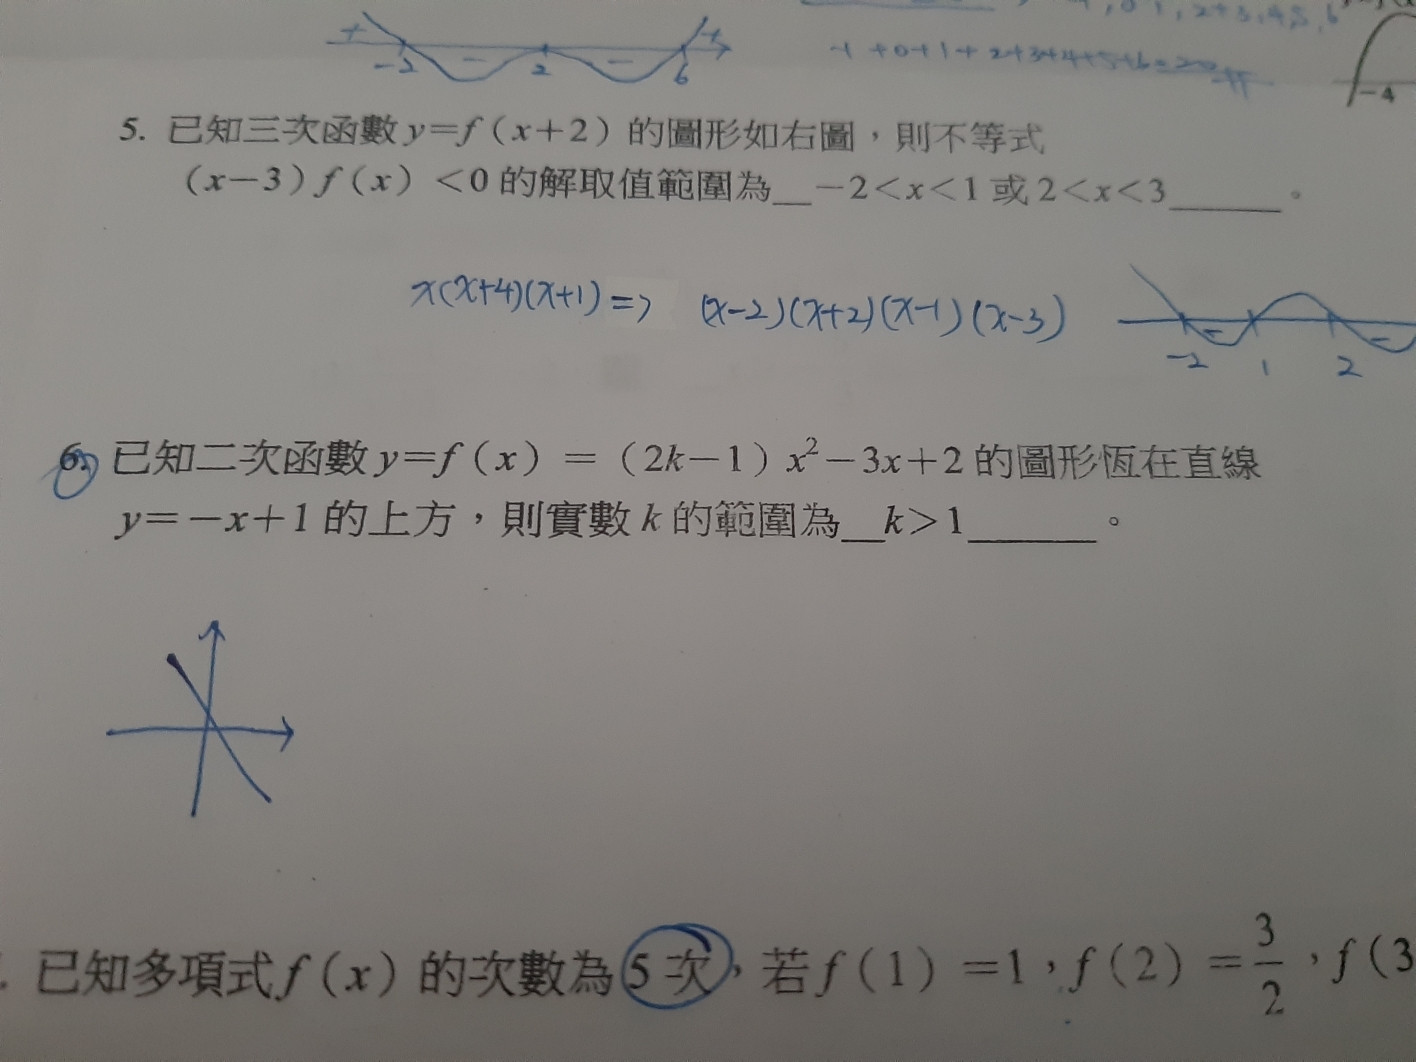 + -2 - 2 - 6 +
-1+0+1+2+3+4+5+6=20
-4
5. 已知三次函數 y=f(x+2) 的圖形如右圖，則不等式
(x-3)f(x)<0 的解取值範圍為__-2<x<1 或 2<x<3______。
x(x+4)(x+1)=> (x-2)(x+2)(x-1)(x-3)
-2 - 1 2 -
6. 已知二次函數 y=f(x)=(2k-1)x²-3x+2 的圖形恆在直線
y=-x+1 的上方，則實數 k 的範圍為__k>1______。
已知多項式 f(x) 的次數為 5 次，若 f(1)=1，f(2)=3/2，f(3